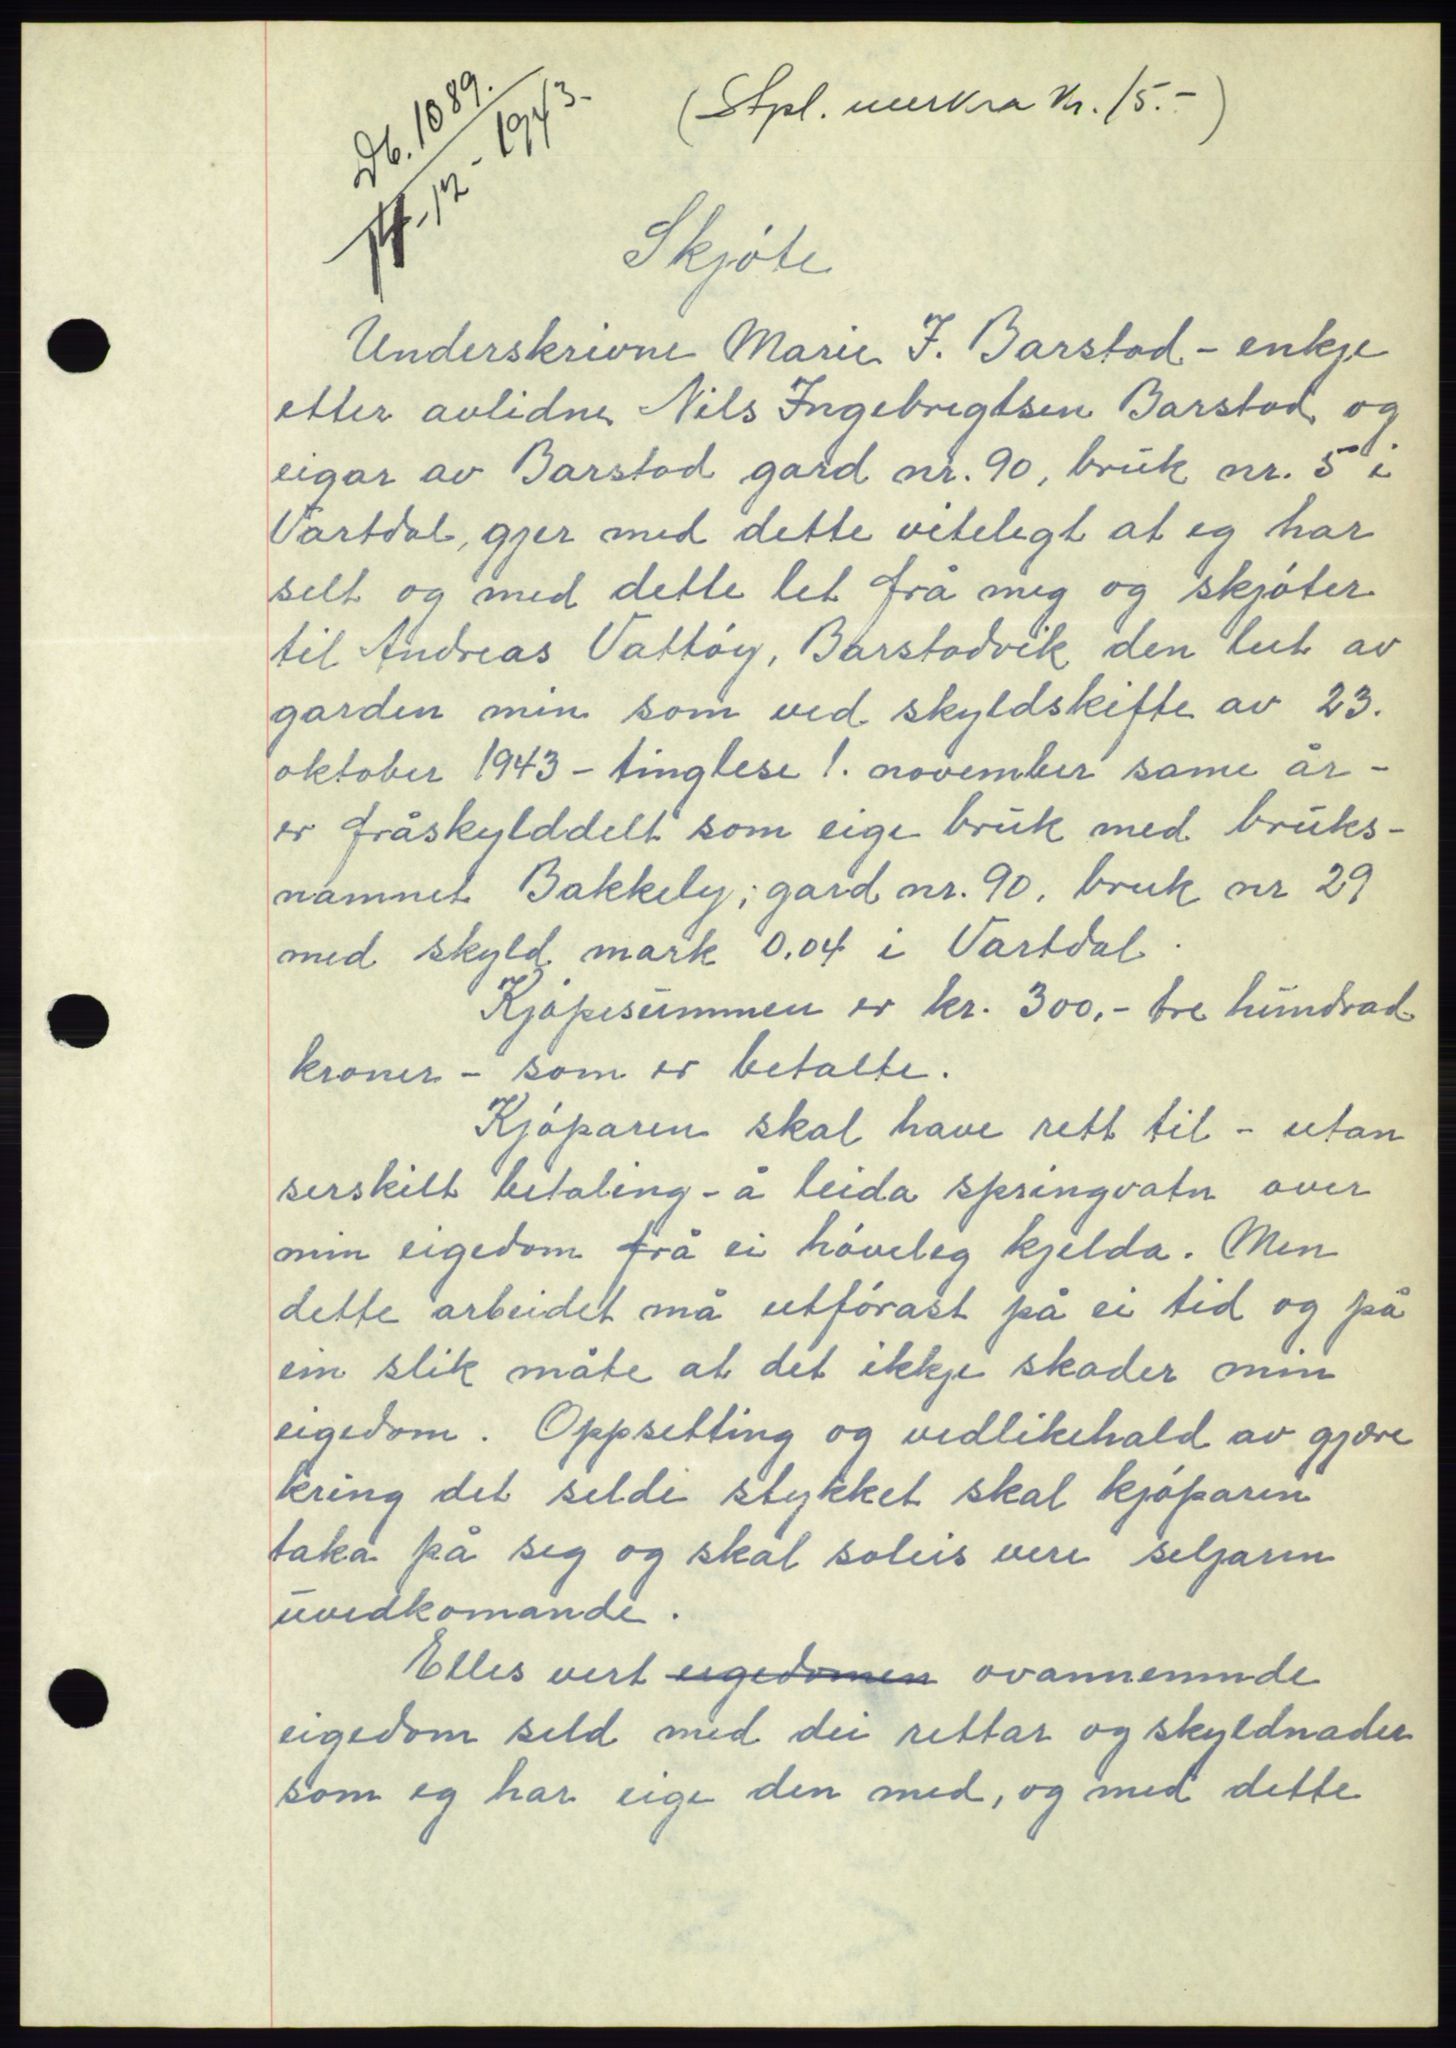 Db. 1089.
14-12-1943-
(Stpl. merkra kr. 15.-)
Skjóte
Underskrivne Marie I. Barstad - enkje
etter avlidne Nils Ingebregtsen Barstad og
eigar av Barstad gard nr. 90, bruk nr. 5 i
Vartdal, gjer med dette vitelegt at eg har
selt og med dette let frå meg og skjóter
til Andreas Vattóy, Barstadvik den lut av
garden min som ved skyldskifte av 23.
oktober 1943 - tinglese 1. november same år -
er fråskylddelt som eige bruk med bruks-
namnet Bakkely; gard nr. 90, bruk nr 29
med skyld mark 0.04 i Vartdal.
Kjópesummen er kr. 300.- tre hundrad
kroner - som er betalte.
Kjóparen skal have rett til - utan
serskilt betaling - å leida springvatn over
min eigedom frå ei hóveleg kjelda. Men
dette arbeidet må utfórast på ei tid og på
ein slik måte at det ikkje skader min
eigedom. Oppsetting og vedlikehald av gjære
kring det selde stykket skal kjóparen
taka på seg og skal soleis vere seljaren
uvedkomande.
Elles vert eigedomen ovannemnde
eigedom seld med dei rettar og skyldnader
som eg har eige den med, og med dette